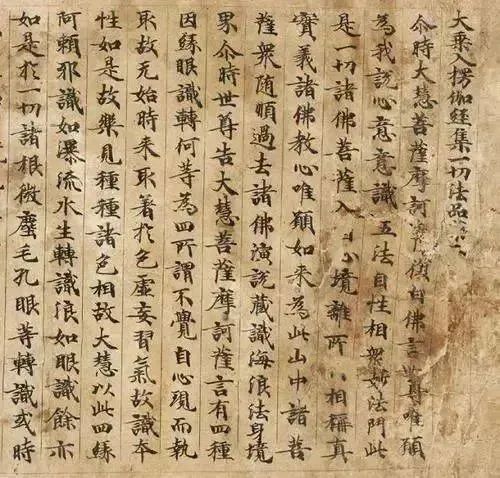 大乘入楞伽經集一切法品第
尒時大慧菩薩摩訶薩復白佛言世尊唯願
為我說心意意識五法自性相眾妙法門此
是一切諸佛菩薩入心境離所相稱真
實義諸佛教心唯願如来為此山中諸菩
薩眾随順過去諸佛演說藏識海浪法身境
界尒時世尊告大慧菩薩摩訶薩言有四種
因緣眼識轉何等為四所謂不覺自心現而執
取故无始時来取著於色虛妄習氣故識本
性如是故樂見種種諸色相故大慧以此四緣
阿頼邪識如瀑流水生轉識浪如眼識餘亦
如是於一切諸根微塵毛孔眼等轉識或時